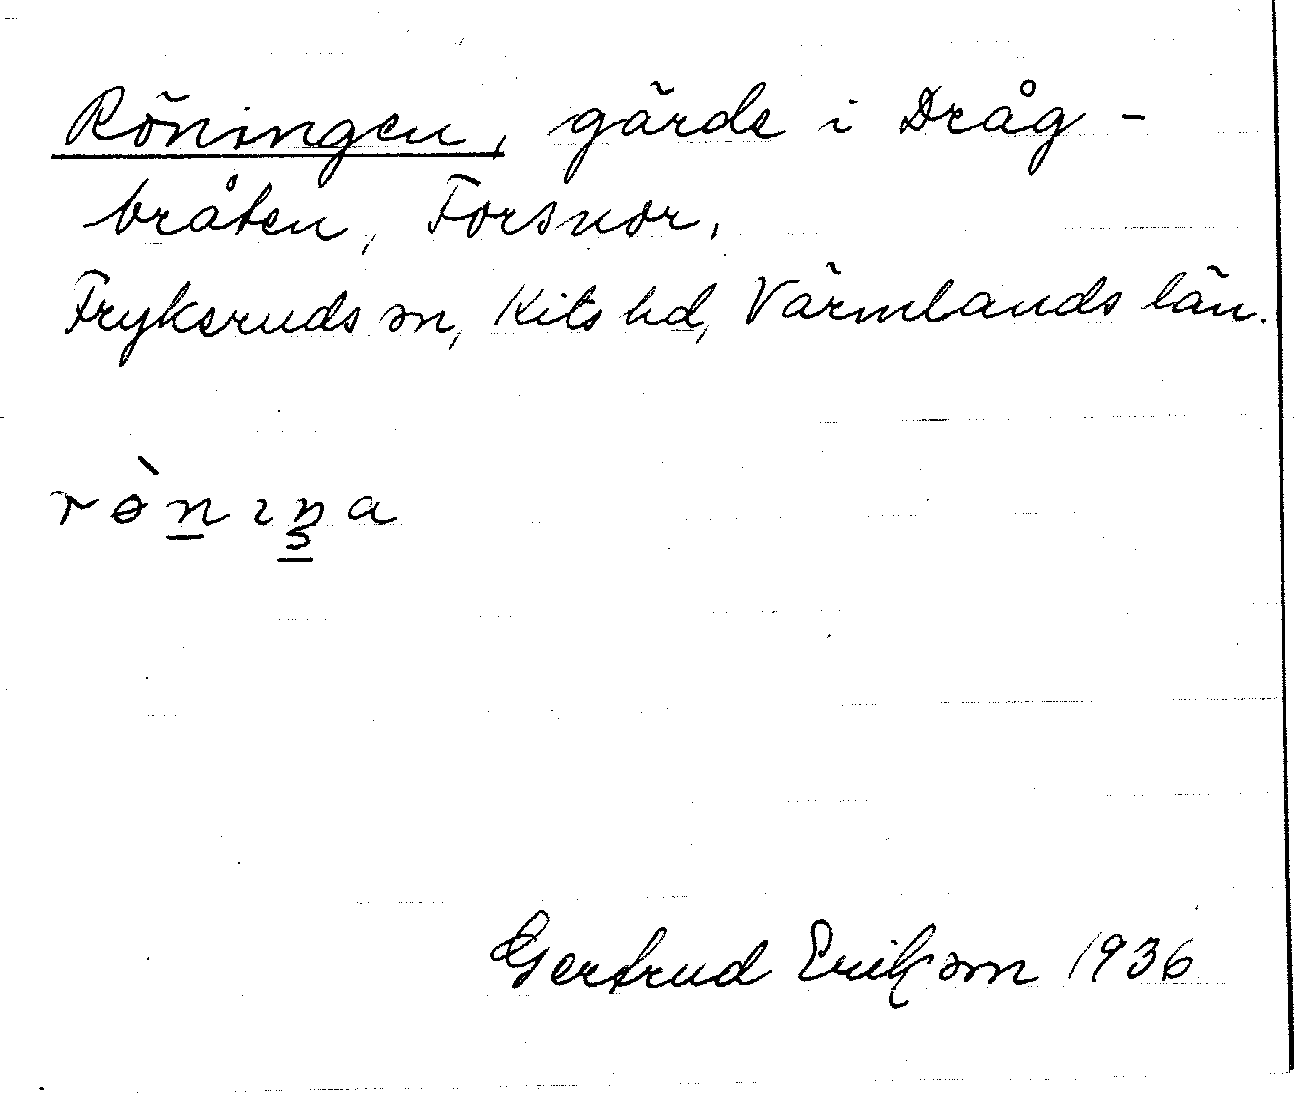 Röningen, gärde i Dråg-
bråten, Forsnor,
Frykeruds sn, Kils hd, Värmlands län.
Gertrud Erikson 1936